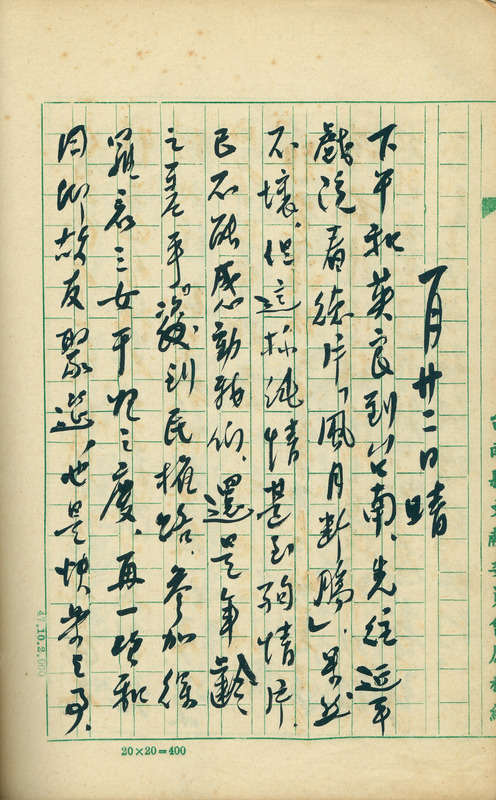 一月廿二日 晴
下午和英良到台南。先往延平
戲院看德片「風月断腸」。果然
不壞。但這種純情甚至殉情片。
已不能感動我們。還是年齡
之差乎。後到民權路。參加徐
三女于之慶。再一憶和
故友聚。也是快樂之事。
20×20=400
47.10.2.000